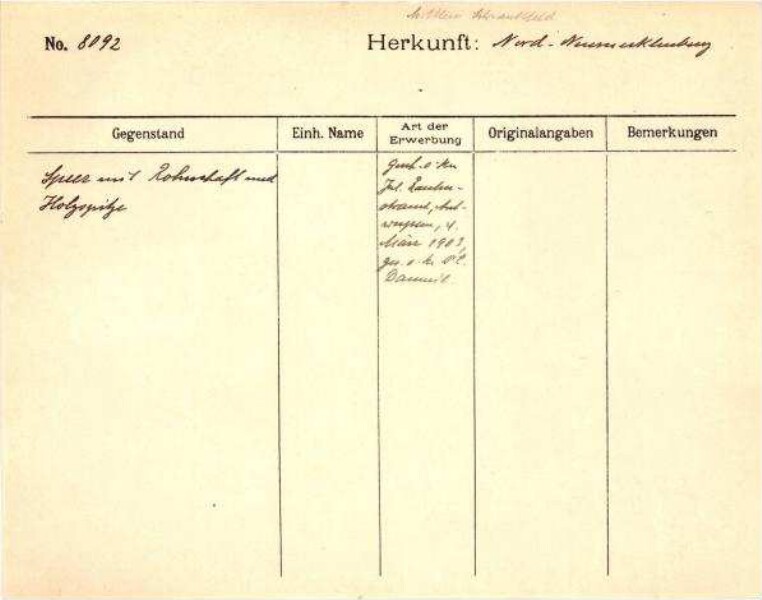 Mittlere Schrankfeld
No. 8092
Herkunft: Nord-Neumecklenburg
Gegenstand
Einh. Name
Art der
Erwerbung
Originalangaben
Bemerkungen
Speer mit Rohrschaft und
Holzspitze
Gesch. v. Hn
Jul. Rauten-
strauch, Ant-
werpen, 4.
März 1903,
ges. v. Hn